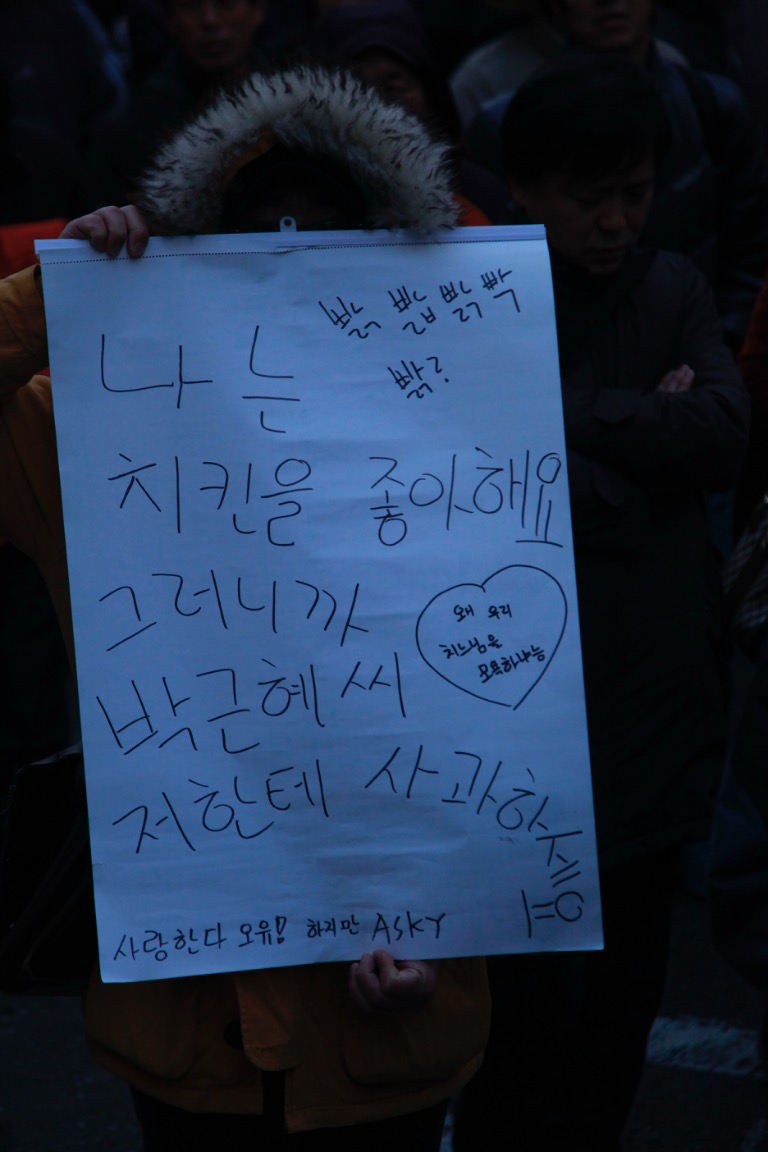 빩 빫 빩 빡
빩?
나는
치킨을 좋아해요
그러니까
왜 우리
치느님을
모욕하냐능
박근혜 씨
저한테 사과하세요
사랑한다 오유! 하지만 ASKY